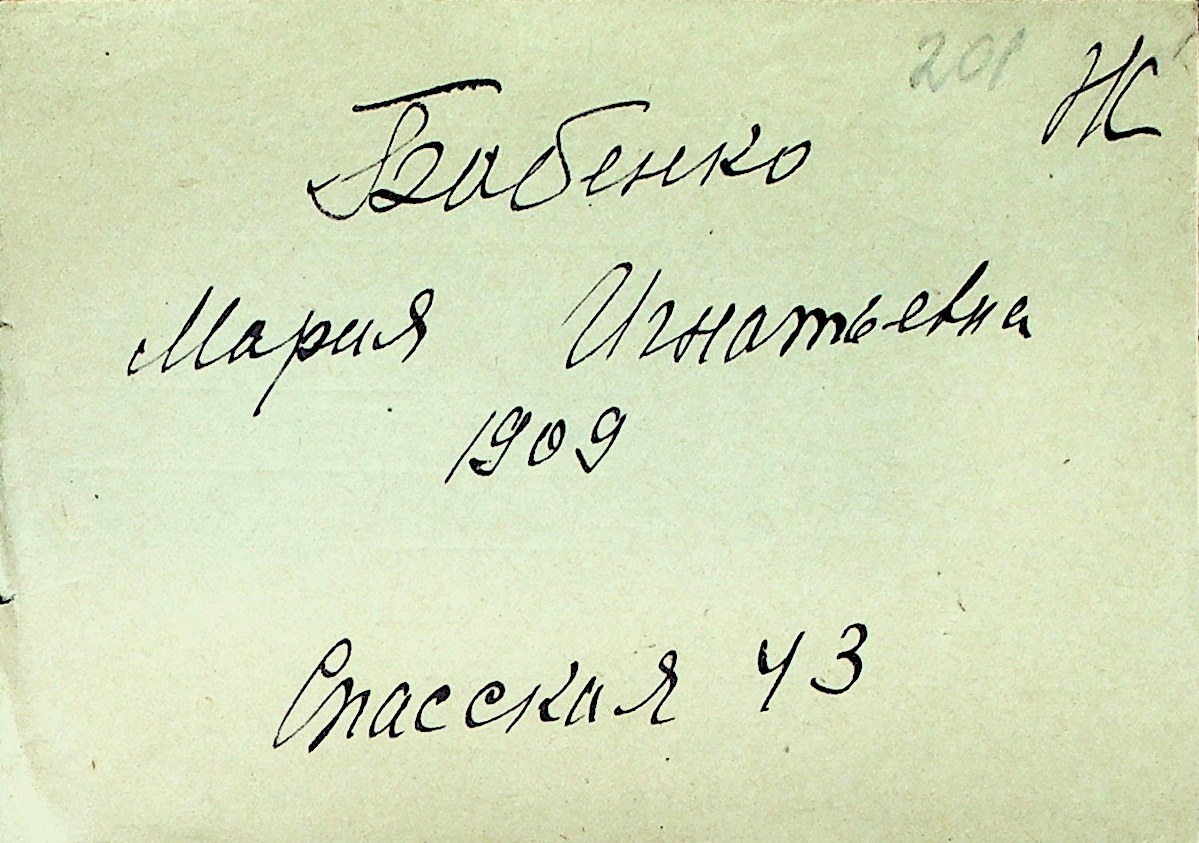 201 Ж
Бабенко
Мария Игнатьевна
1909
Спасская 43